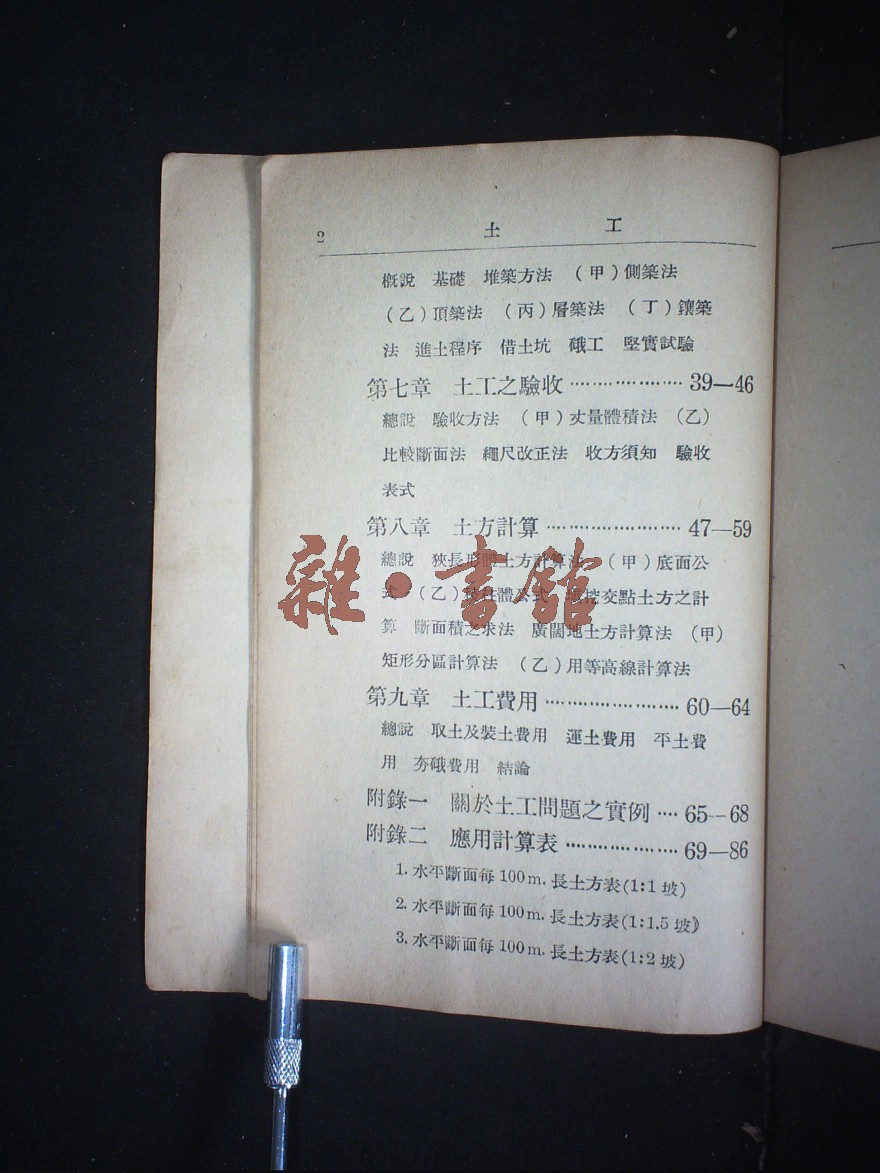 2 土 工
概說 基礎 堆築方法 (甲)側築法
(乙)頂築法 (丙)層築法 (丁)鑲築
法 進土程序 借土坑 硪工 堅實試驗
第七章 土工之驗收 ··················· 39—46
總說 驗收方法 (甲)丈量體積法 (乙)
比較斷面法 繩尺改正法 收方須知 驗收
表式
第八章 土方計算 ······················· 47—59
總說 狹長形體土方計算法 (甲)底面公
式 (乙) 體公式 挖交點土方之計
算 斷面積之求法 廣闊地土方計算法 (甲)
矩形分區計算法 (乙)用等高線計算法
第九章 土工費用 ······················· 60—64
總說 取土及裝土費用 運土費用 平土費
用 夯硪費用 結論
附錄一 關於土工問題之實例 ···· 65—68
附錄二 應用計算表 ··················· 69—86
1. 水平斷面每100m. 長土方表(1:1坡)
2. 水平斷面每100m. 長土方表(1:1.5坡)
3. 水平斷面每100m. 長土方表(1:2坡)
雜·書館